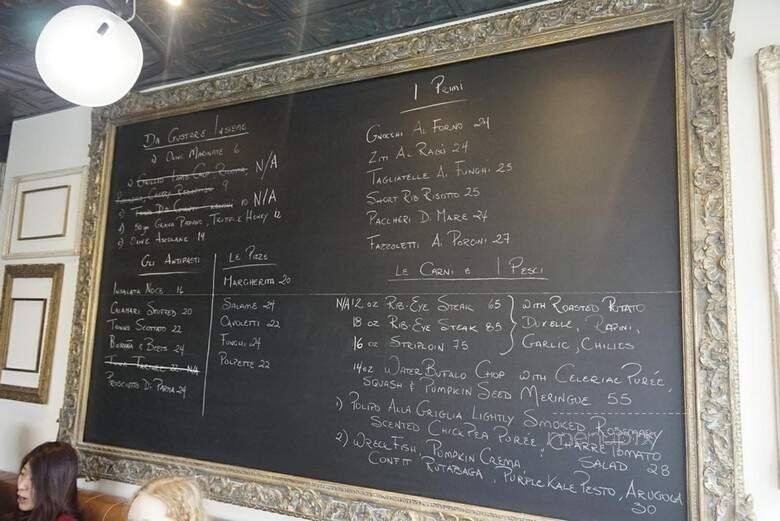 Da Gustare Insieme
a) Olive Marinate 6
N/A
9
c) 10 N/A
d) 50gr Grana Padano, Truffle Honey 12
e) Olive Ascolane 14
Gli Antipasti
Insalata Noce 16
Calamari Stuffed 20
Tonno Scottato 22
Burrata & Beets 24
N/A
Prosciutto Di Parma 24
Le Pizze
Margherita 20
Salame 24
Cavoletti 22
Funghi 24
Polpette 22
I Primi
Gnocchi Al Forno 24
Ziti Al Ragù 24
Tagliatelle Ai Funghi 25
Short Rib Risotto 25
Paccheri Di Mare 24
Fazzoletti Ai Porcini 27
Le Carni e I Pesci
N/A 12 oz Rib-Eye Steak 65
18 oz Rib-Eye Steak 85
16 oz Striploin 75
with Roasted Potato
Duxelle, Rapini,
Garlic, Chilies
14oz Water Bufalo Chop with Celeriac Purée,
Squash & Pumpkin Seed Meringue 55
1) Polipo Alla Griglia Lightly Smoked Rosemary
Scented Chick Pea Purée, Charre Tomato
Salad 28
2) Wreckfish, Pumpkin Crema,
Confit Rutabaga, Purple Kale Pesto, Arugola
30
menupix